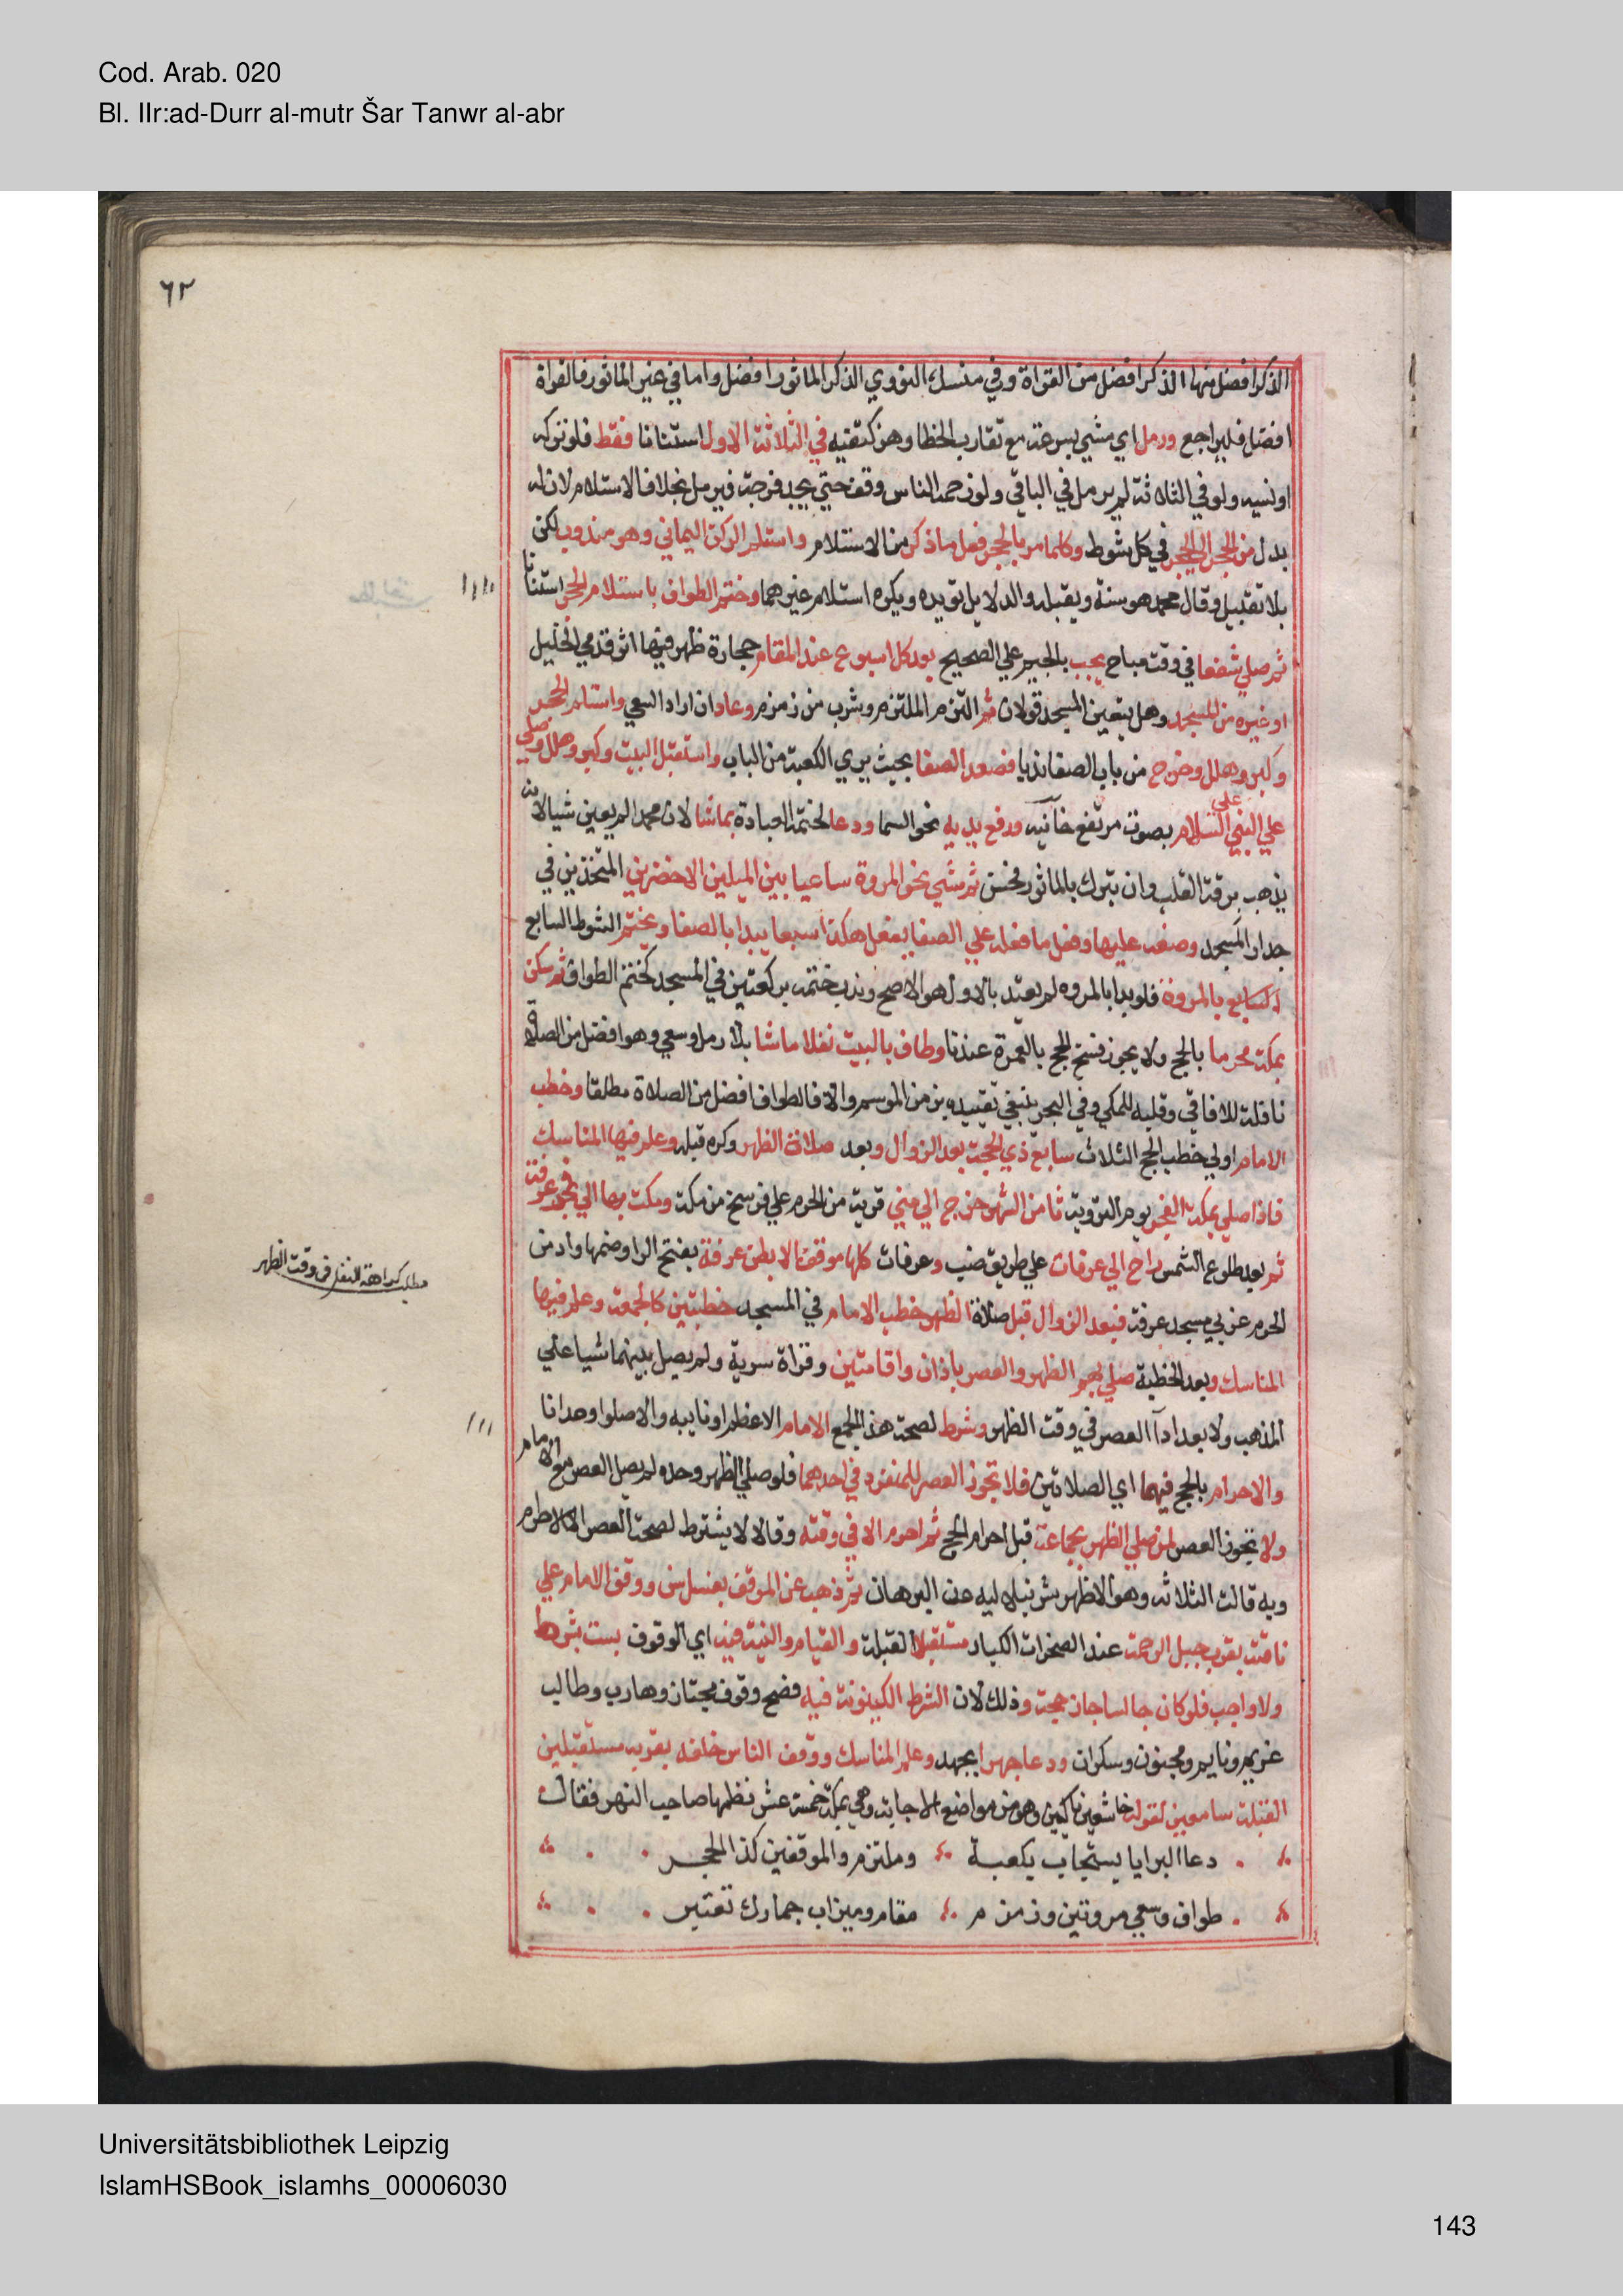 Cod. Arab. 020
Bl. IIr:ad-Durr al-mutr Šar Tanwr al-abr
٦٢
الذكر افضل منها الذكر افضل من القراة وفي منسك النووي الذكر الماثور افضل واما في غير الماثور فالقراة
افضل فليراجع ورمل اي مشي بسرعة مع تقارب الخطا وهز كتفيه في الثلاثة الاول استنانا فقط فلو تركه
او نسيه ولو في الثلاثة لم يرمل في الباقي ولو زحمه الناس وقف حتي يجد فرجة فيرمل بخلاف الاستلام لان له
بدل من الحجر الي الحجر في كل شوط وكلما مر بالحجر فعل ماذكر من الاستلام واستلم الركن اليماني وهو مندوب لكن
بلا تقبيل وقال محمد هو سنة ويقبله والدلايل تويده ويكره استلام غيرهما وختم الطواف باستلام الحجر استنانا
ثم صلي شفعا في وقت مباح يجب بالجيم علي الصحيح بعد كل اسبوع عند المقام حجارة ظهر فيها اثر قدمي الخليل
او غيره من المسجد وهل يتعين المسجد قولان ثم التزم الملتزم وشرب من زمزم وعاد ان اراد السعي واستلم الحجر
وكبر وهلل وخرج من باب الصفا ندبا فصعد الصفا بحيث يري الكعبة من الباب واستقبل البيت وكبر وهلل وصلي
علي النبي عليه السلام بصوت مرتفع خانيه ورفع يديه نحو السما ودعا لختمه العبادة بماشا لان محمدا لم يعين شيا لانه
يذهب برقة القلب وان تبرك بالماثور فحسن ثم مشي نحو المروة ساعيا بين الميلين الاخضرين المتخذين في
جدار المسجد وصعد عليها وفعل ما فعله علي الصفا يفعل هكذا سبعا يبدا بالصفا ويختم الشوط السابع
السابع بالمروة فلو بدا بالمروه لم يعتد بالاول هو الاصح وندب ختمه بركعتين في المسجد كختم الطواف ثم سكن
بمكة محرما بالحج ولا يجوز فسخ الحج بالعمرة عندنا وطاف بالبيت نفلا ماشا بلا رمل وسعي وهو افضل من الصلاة
نافلة للافاقي وقلبه للمكي وفي البحر ينبغي تقييده بزمن الموسم والا فالطواف افضل من الصلاة مطلقا وخطب
الامام اولي خطب الحج الثلاث سابع ذي الحجة بعد الزوال وبعد صلاة الظهر وكره قبله وعلم فيها المناسك
فاذا صلي بمكة الفجر يوم التروية ثامن الشهر خرج الي مني قرية من الحرم علي فرسخ من مكة ومكث بها الي فجر عرفة
ثم بعد طلوع الشمس راح الي عرفات علي طريق ضب وعرفات كلها موقف الا بطن عرفة بفتح الرا وضمها واد من
الحرم غربي مسجد عرفة فبعد الزوال قبل صلاة الظهر خطب الامام في المسجد خطبتين كالجمعة وعلم فيها
المناسك وبعد الخطبة صلي بهم الظهر والعصر باذان واقامتين وقراة سرية ولم يصل بينهما شيا علي
المذهب ولا بعد ادآ العصر في وقت الظهر وشرط لصحة هذا الجمع الامام الاعظم او نايبه والا صلوا وحدانا
والاحرام بالحج فيهما اي الصلاتين فلا تجوز العصر للمنفرد في احدهما فلو صلي الظهر وحده لم يصل العصر مع الامام
ولا تجوز العصر لمن صلي الظهر بجماعة قبل احرام الحج ثم احرم الا في وقته وقالا لا يشترط لصحة العصر الا الاحرام
وبه قالت الثلاثه وهو الاظهر شرنبلاليه عن البرهان ثم ذهب عن الموقف بغسل سن ووقف الامام علي
ناقته بقرب جبل الرحمة عند الصخرات الكبار مستقبلا القبلة والقيام والنية فيه اي الوقوف ليست بشرط
ولا واجب فلو كان جالسا جاز حجه وذلك لان الشرط الكينونة فيه فصح وقوف مجتاز وهارب وطالب
غريم ونايم ومجنون وسكران ودعا جهرا بجهد وعلم المناسك ووقف الناس خلفه بقربه مستقبلين
القبلة سامعين لقوله خاشعين باكين وهو من مواضع الاجابة وهي بمكة خمسة عشر نظمها صاحب النهر فقال
دعا البرايا يستجاب بكعبة وملتزم والموقفين كذا الحجر
طواف وسعي مروتين وزمزم مقام وميزاب جمارك تعتبر
مطلب كراهة النفل في وقت الظهر
Universitätsbibliothek Leipzig
IslamHSBook_islamhs_00006030
143